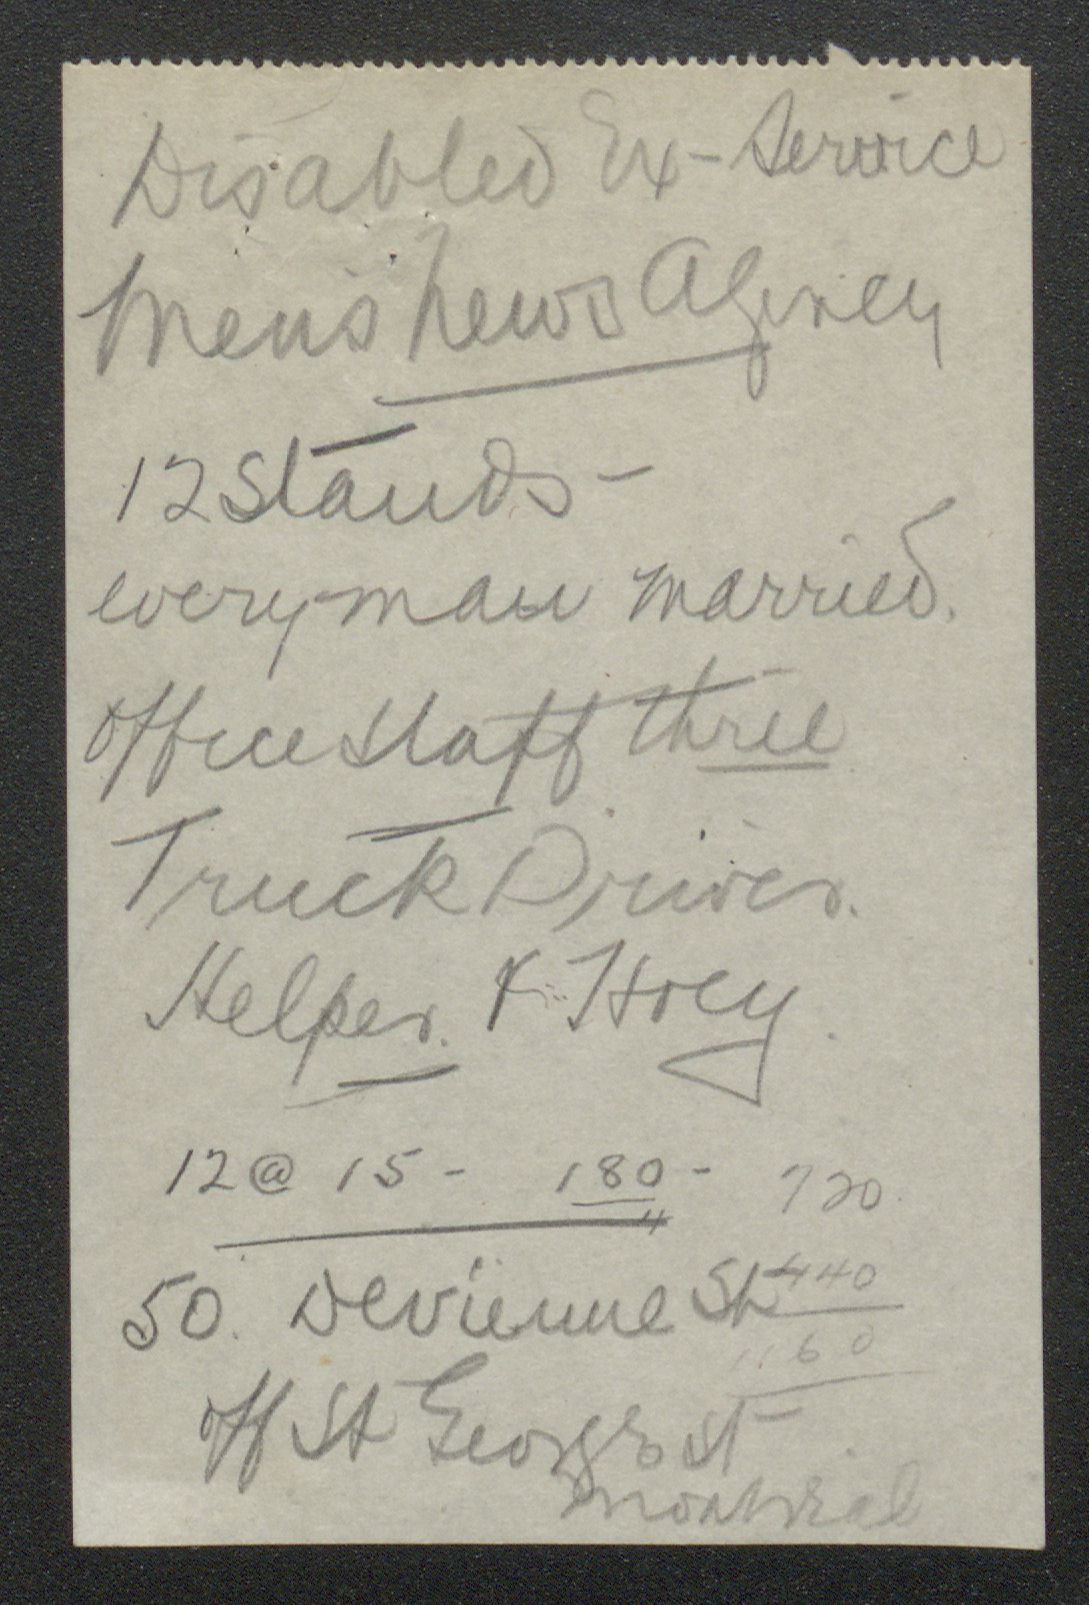 Disabled Ex-Service
Men's News Agency
12 Stands -
every man married.
office staff three
Truck Driver.
Helper. & Hoey.
12 @ 15 - 180 - 720
4
50. Devienne St 440
1160
off St George St
Montreal